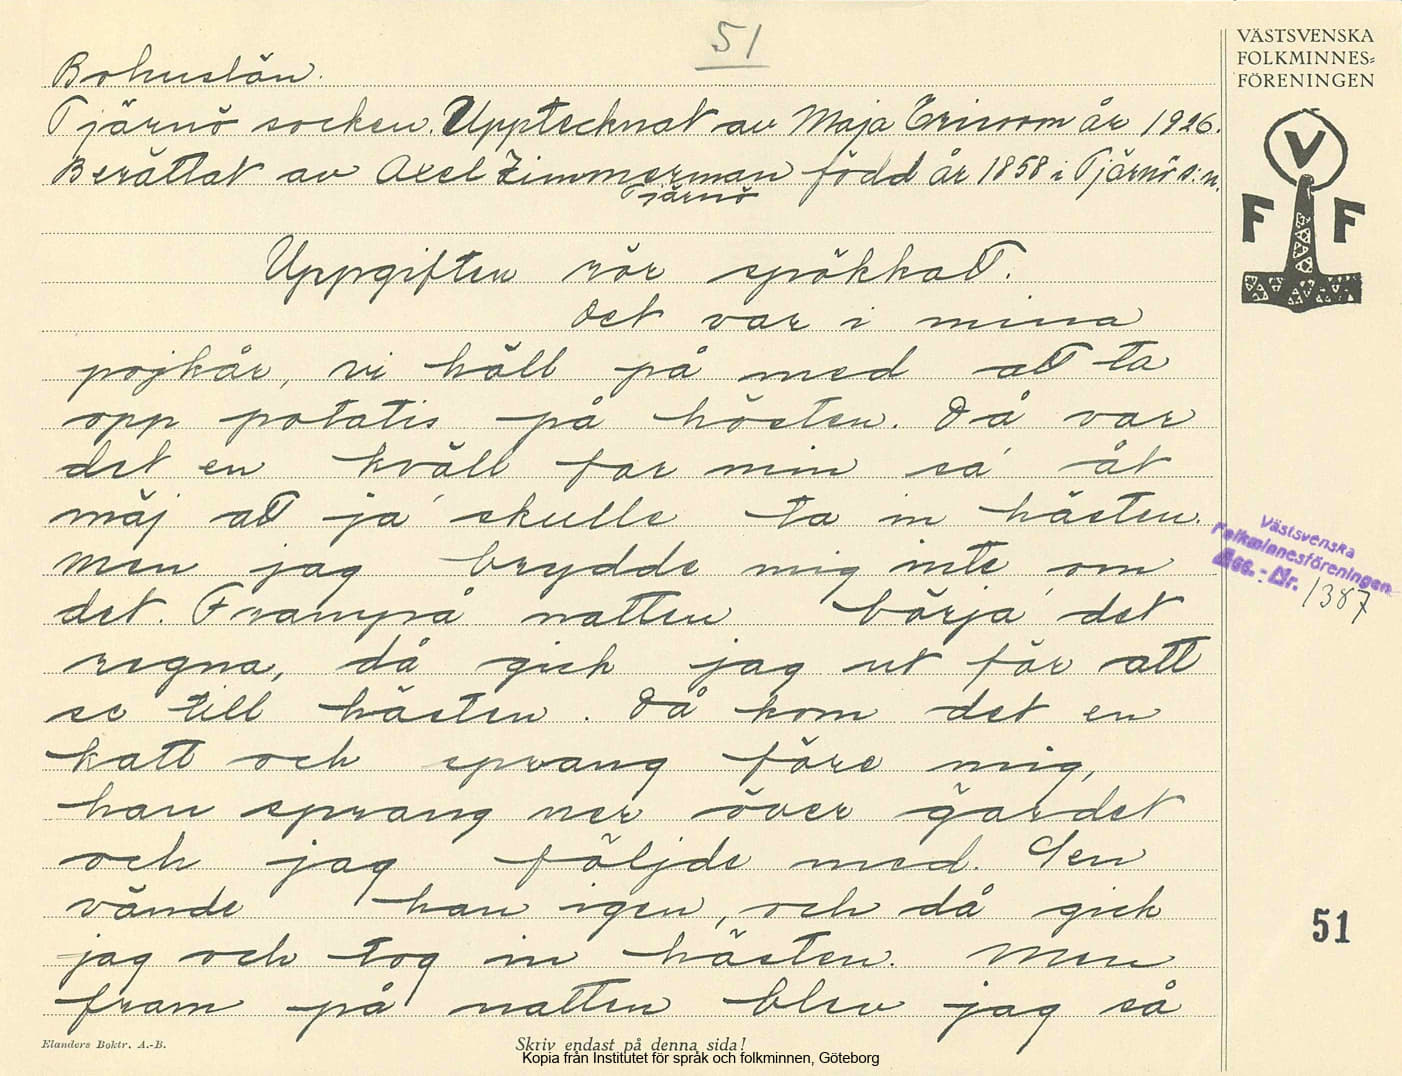 51
VÄSTSVENSKA
FOLKMINNES=
FÖRENINGEN
V
F F
Bohuslän.
Tjärnö socken. Upptecknat av Maja Ericson år 1926.
Berättat av Axel Zimmerman född år 1858 i Tjärnö s:n.
Tjärnö
Uppgiften rör spökkatt.
Det var i mina
pojkår, vi höll på med att ta
opp potatis på hösten. Då var
det en kväll far min sa' åt
mäj att ja' skulle ta in hästen.
Men jag brydde mig inte om
det. Frampå natten börja' det
regna, då gick jag ut för att
se till hästen. Då kom det en
katt och sprang före mig,
han sprang ner över gärdet
och jag följde med. Sen
vände han igen, och då gick
jag och tog in hästen. Men
fram på natten blev jag så
Västsvenska
Folkminnesföreningen
Acc. - Nr. 1387
51
Elanders Boktr. A.-B.
Skriv endast på denna sida!
Kopia från Institutet för språk och folkminnen, Göteborg